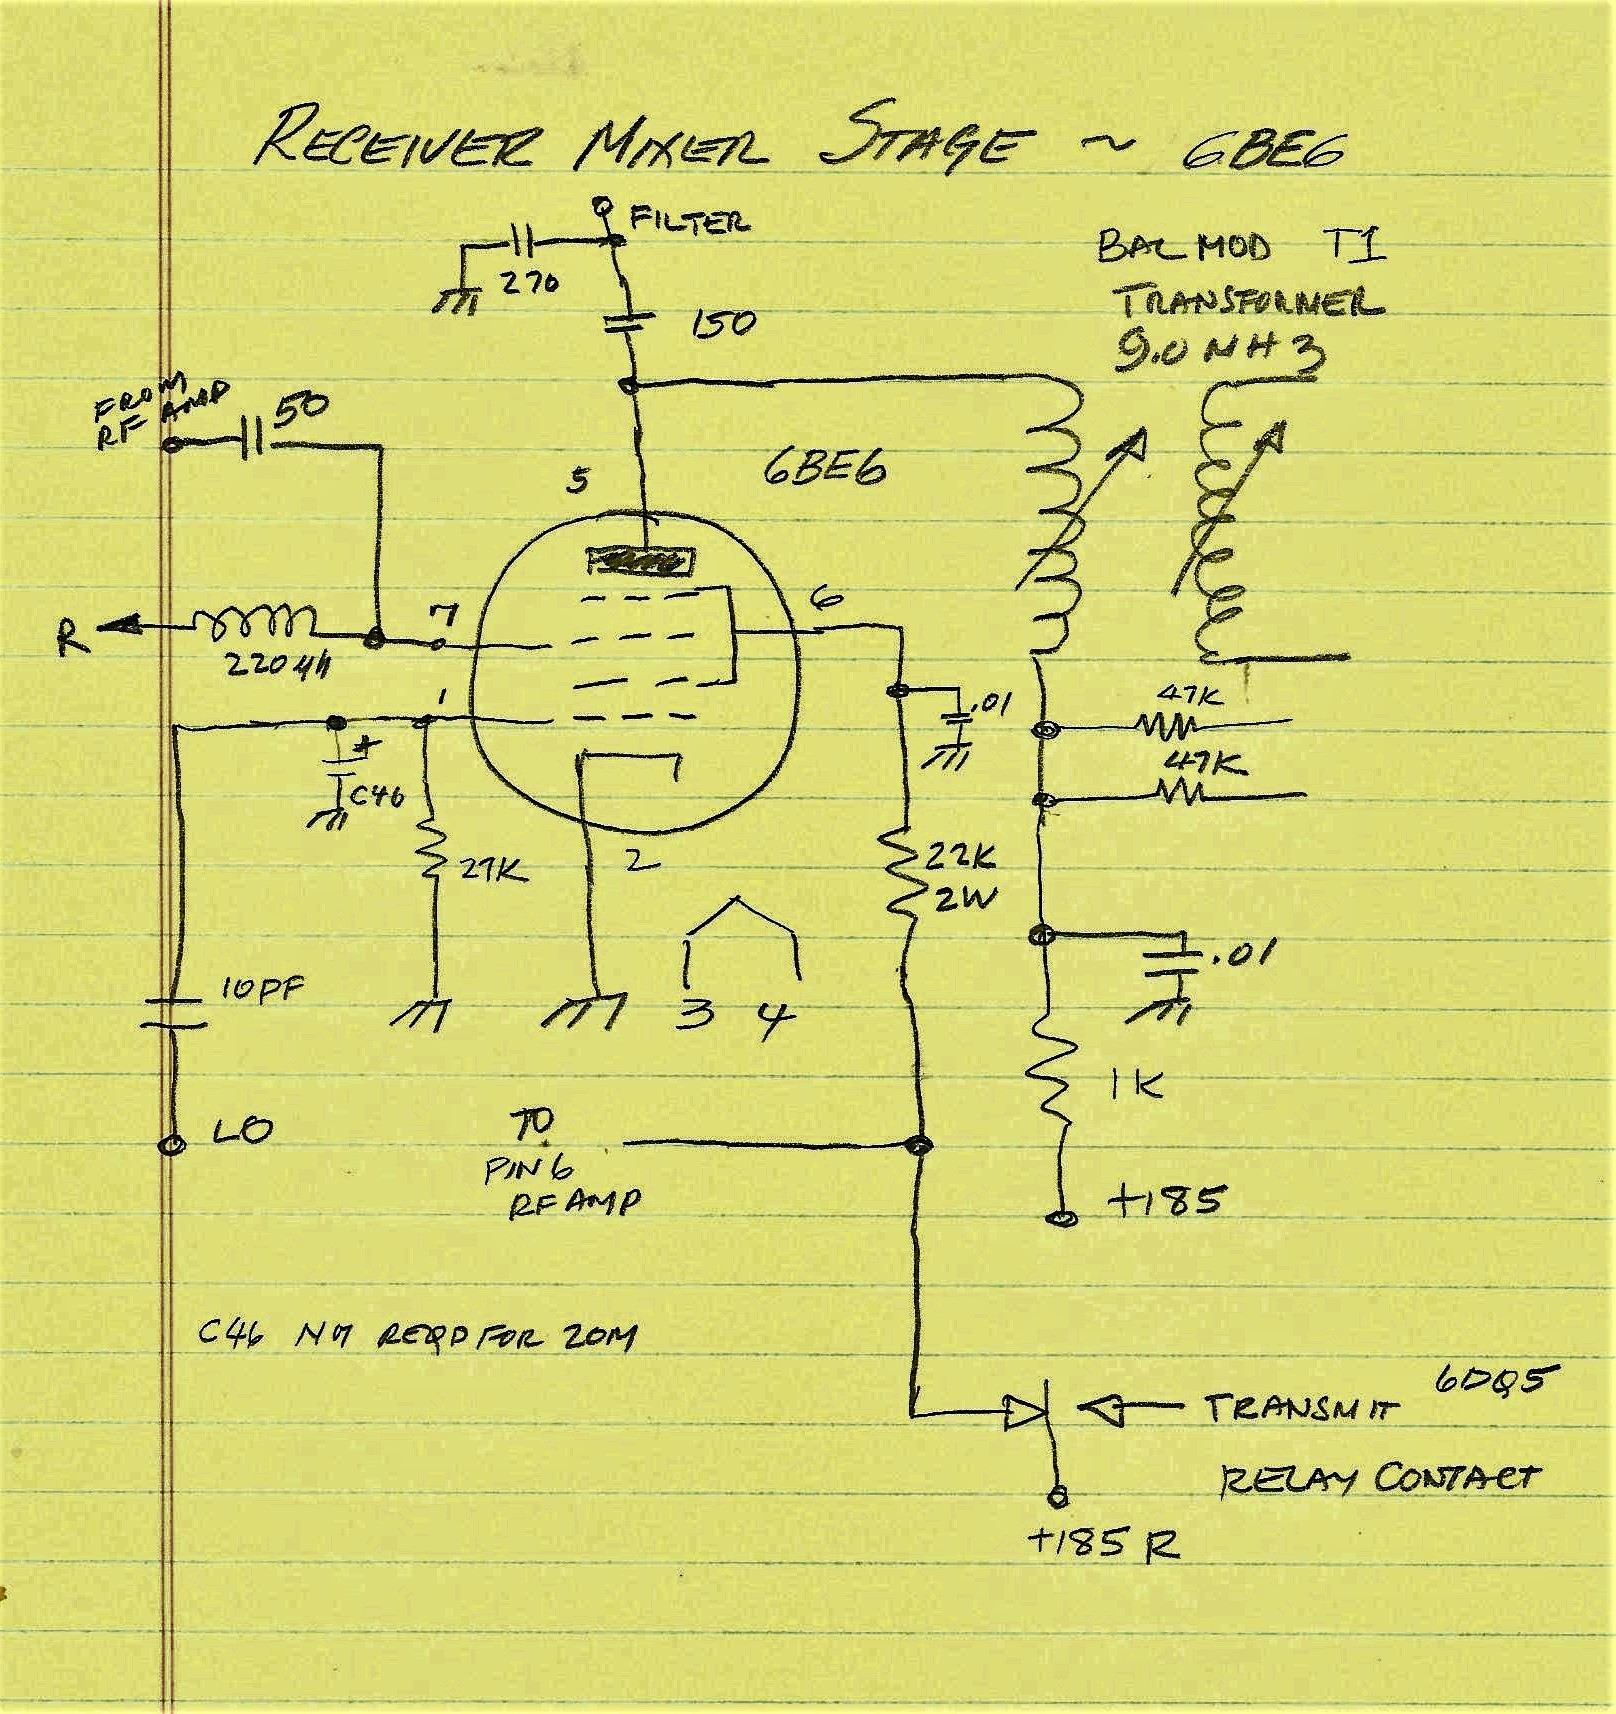 RECEIVER MIXER STAGE ~ 6BE6
FILTER
270
150
BAL MOD T1
TRANSFORMER
9.0 MHz
FROM
RF AMP
50
5
6BE6
7
6
R
220 µh
1
.01
47K
47K
C46
27K
2
22K
2W
.01
10PF
3 4
1K
LO
TO
PIN 6
RF AMP
+185
C46 NOT REQD FOR 20M
6DQ5
TRANSMIT
RELAY CONTACT
+185 R